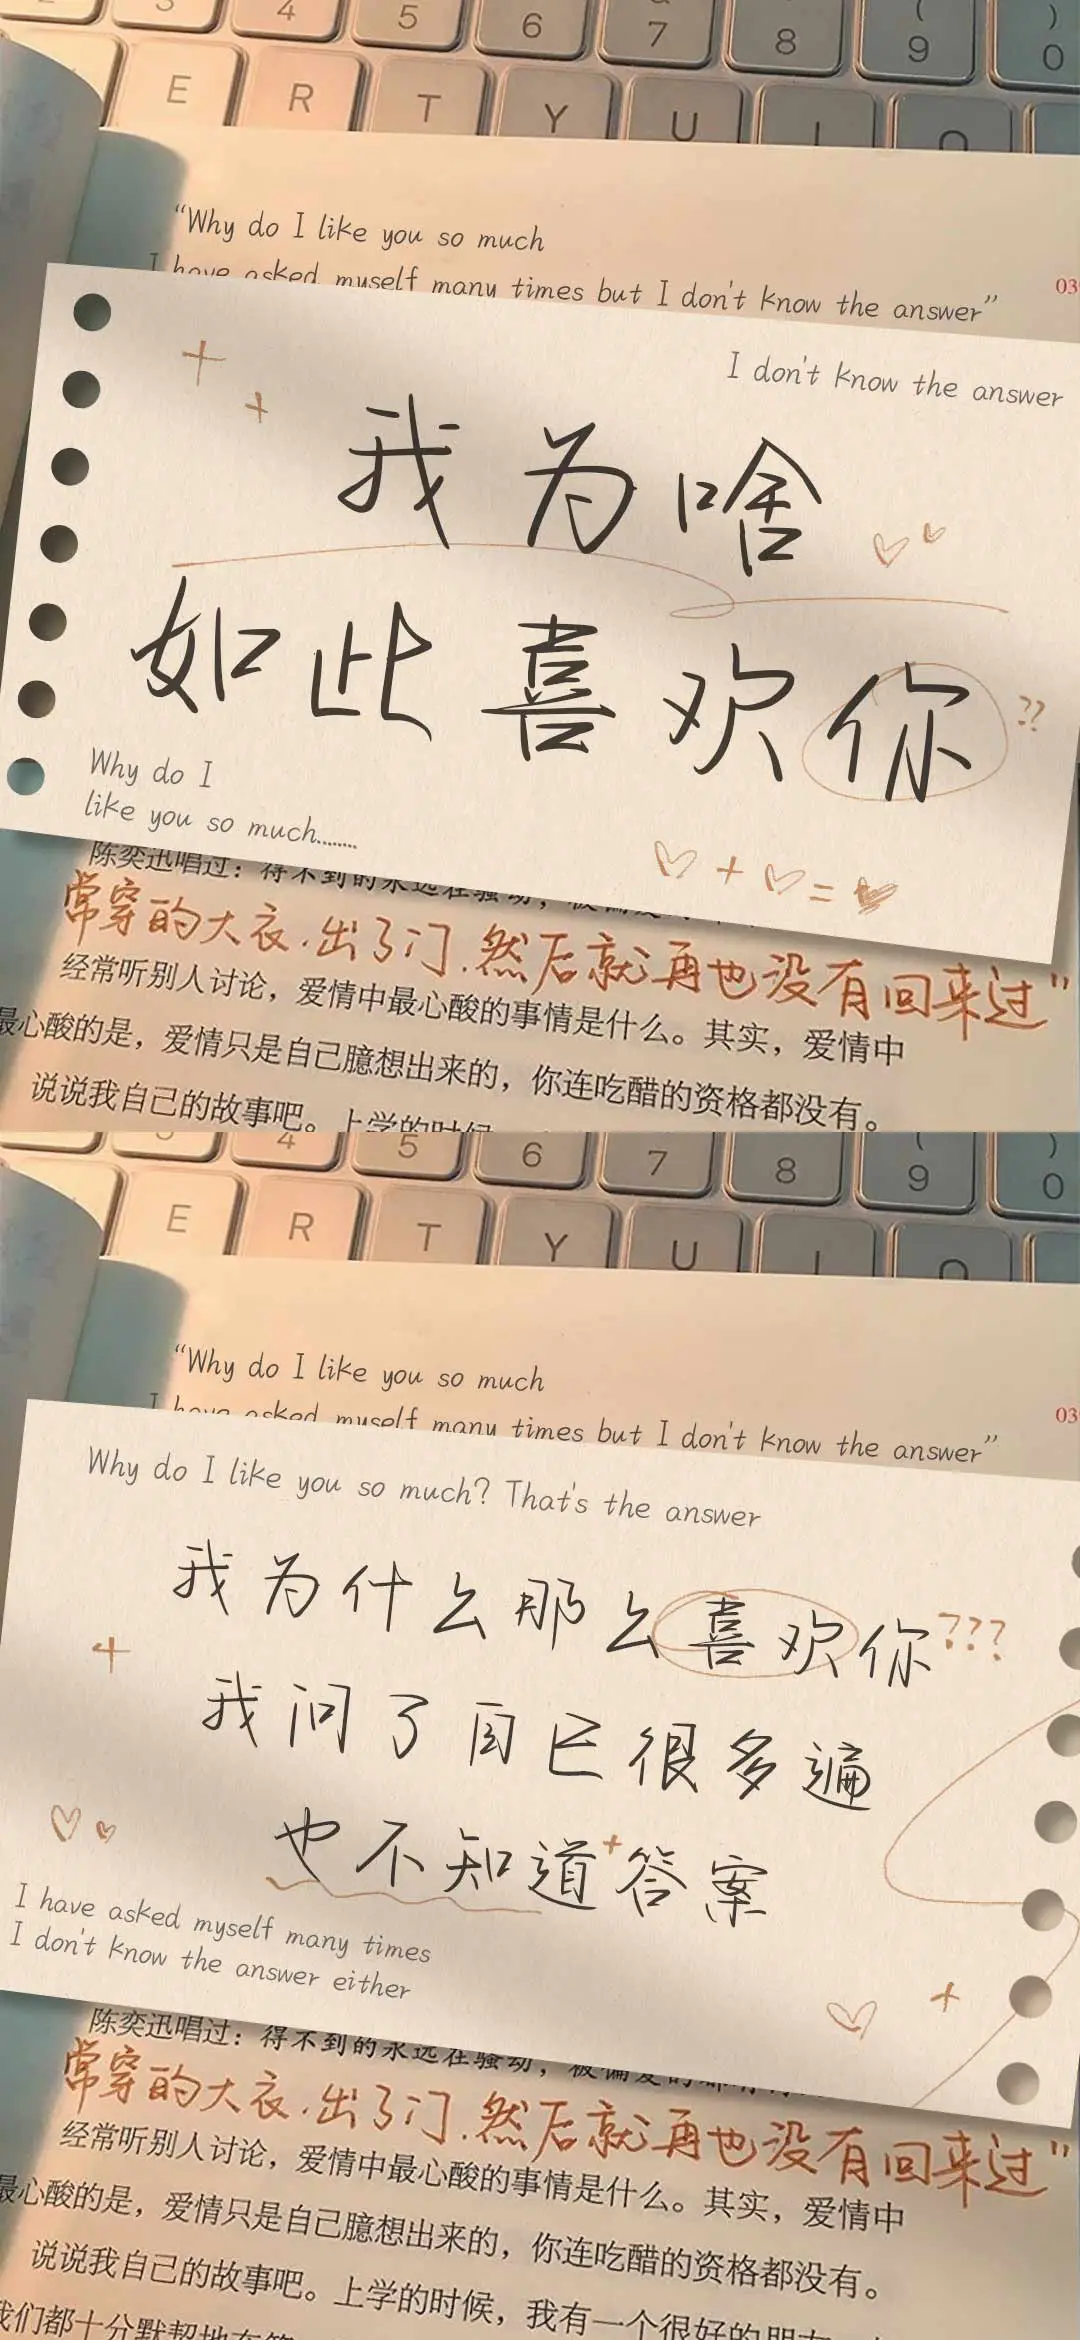 3 4 5 6 7 8 ( 9 ) 0
E R T Y U I O
“Why do I like you so much
I have asked myself many times but I don't know the answer”
03
I don't know the answer
我为啥
如此喜欢你
??
Why do I
like you so much........
陈奕迅唱过：得不到的永远在骚动，被偏爱
常穿的大衣.出了门.然后就再也没有回来过"
经常听别人讨论，爱情中最心酸的事情是什么。其实，爱情中
最心酸的是，爱情只是自己臆想出来的，你连吃醋的资格都没有。
说说我自己的故事吧。上学的时候
3 4 5 6 7 8 ( 9 ) 0
E R T Y U I O
“Why do I like you so much
I have asked myself many times but I don't know the answer”
03
Why do I like you so much? That's the answer
我为什么那么喜欢你???
我问了自己很多遍
也不知道答案
I have asked myself many times
I don't know the answer either
陈奕迅唱过：得不到的永远在骚动，被偏爱的都有
常穿的大衣.出了门.然后就再也没有回来过"
经常听别人讨论，爱情中最心酸的事情是什么。其实，爱情中
最心酸的是，爱情只是自己臆想出来的，你连吃醋的资格都没有。
说说我自己的故事吧。上学的时候，我有一个很好的朋友
我们都十分默契地在